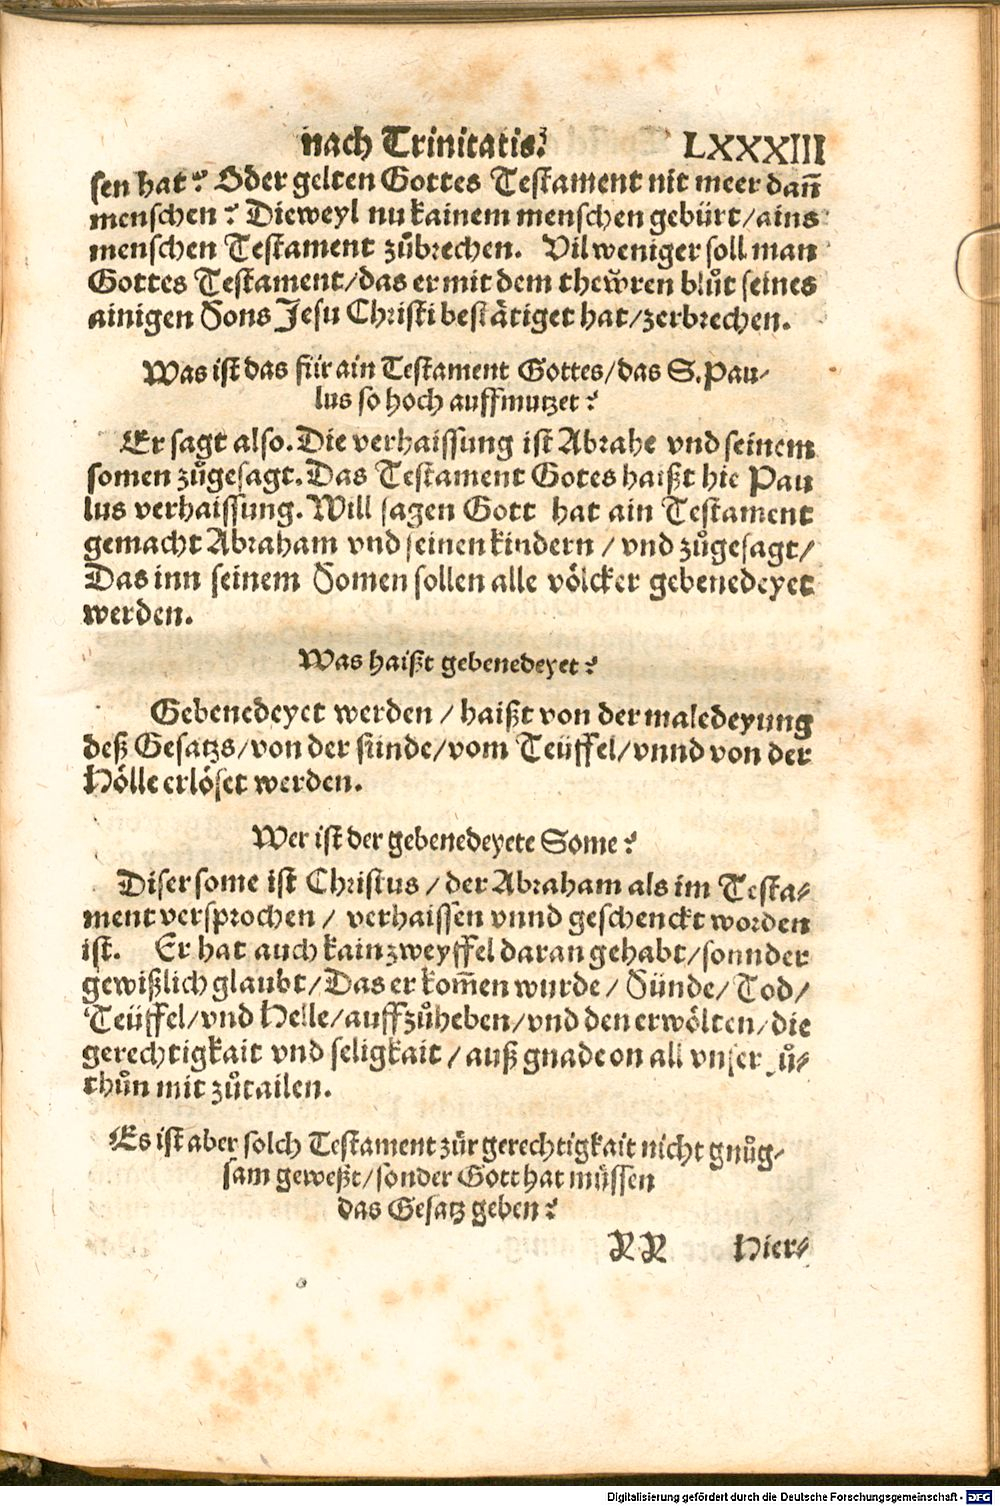 nach Trinitatis. LXXXIII
sen hat? Oder gelten Gottes Testament nit meer dañ
menschen? Dieweyl nu kainem menschen gebürt/ains
menschen Testament zůbrechen. Vil weniger soll man
Gottes Testament/das er mit dem thewren blůt seines
ainigen Sons Jesu Christi bestätiget hat/zerbrechen.
Was ist das für ain Testament Gottes/das S. Pau-
lus so hoch auffmutzet?
Er sagt also. Die verhaissung ist Abrahe vnd seinem
somen zůgesagt. Das Testament Gotes haißt hie Pau
lus verhaissung. Will sagen Gott hat ain Testament
gemacht Abraham vnd seinen kindern / vnd zůgesagt/
Das inn seinem Somen sollen alle völcker gebenedeyet
werden.
Was haißt gebenedeyet?
Gebenedeyet werden / haißt von der maledeyung
deß Gesatzs/von der sünde/vom Teüffel/vnnd von der
Hölle erlöset werden.
Wer ist der gebenedeyete Some?
Diser some ist Christus / der Abraham als im Testa-
ment versprochen / verhaissen vnnd geschenckt worden
ist. Er hat auch kain zweyffel daran gehabt/sonnder
gewißlich glaubt/Das er kom̃en wurde/ Sünde/ Tod/
Teüffel/vnd Helle/auffzůheben/vnd den erwölten/die
gerechtigkait vnd seligkait / auß gnade on all vnser
thůn mit zůtailen.
Es ist aber solch Testament zür gerechtigkait nicht gnůg-
sam geweßt/sonder Gott hat müssen
das Gesatz geben?
RR Hier-
Digitalisierung gefördert durch die Deutsche Forschungsgemeinschaft - DFG